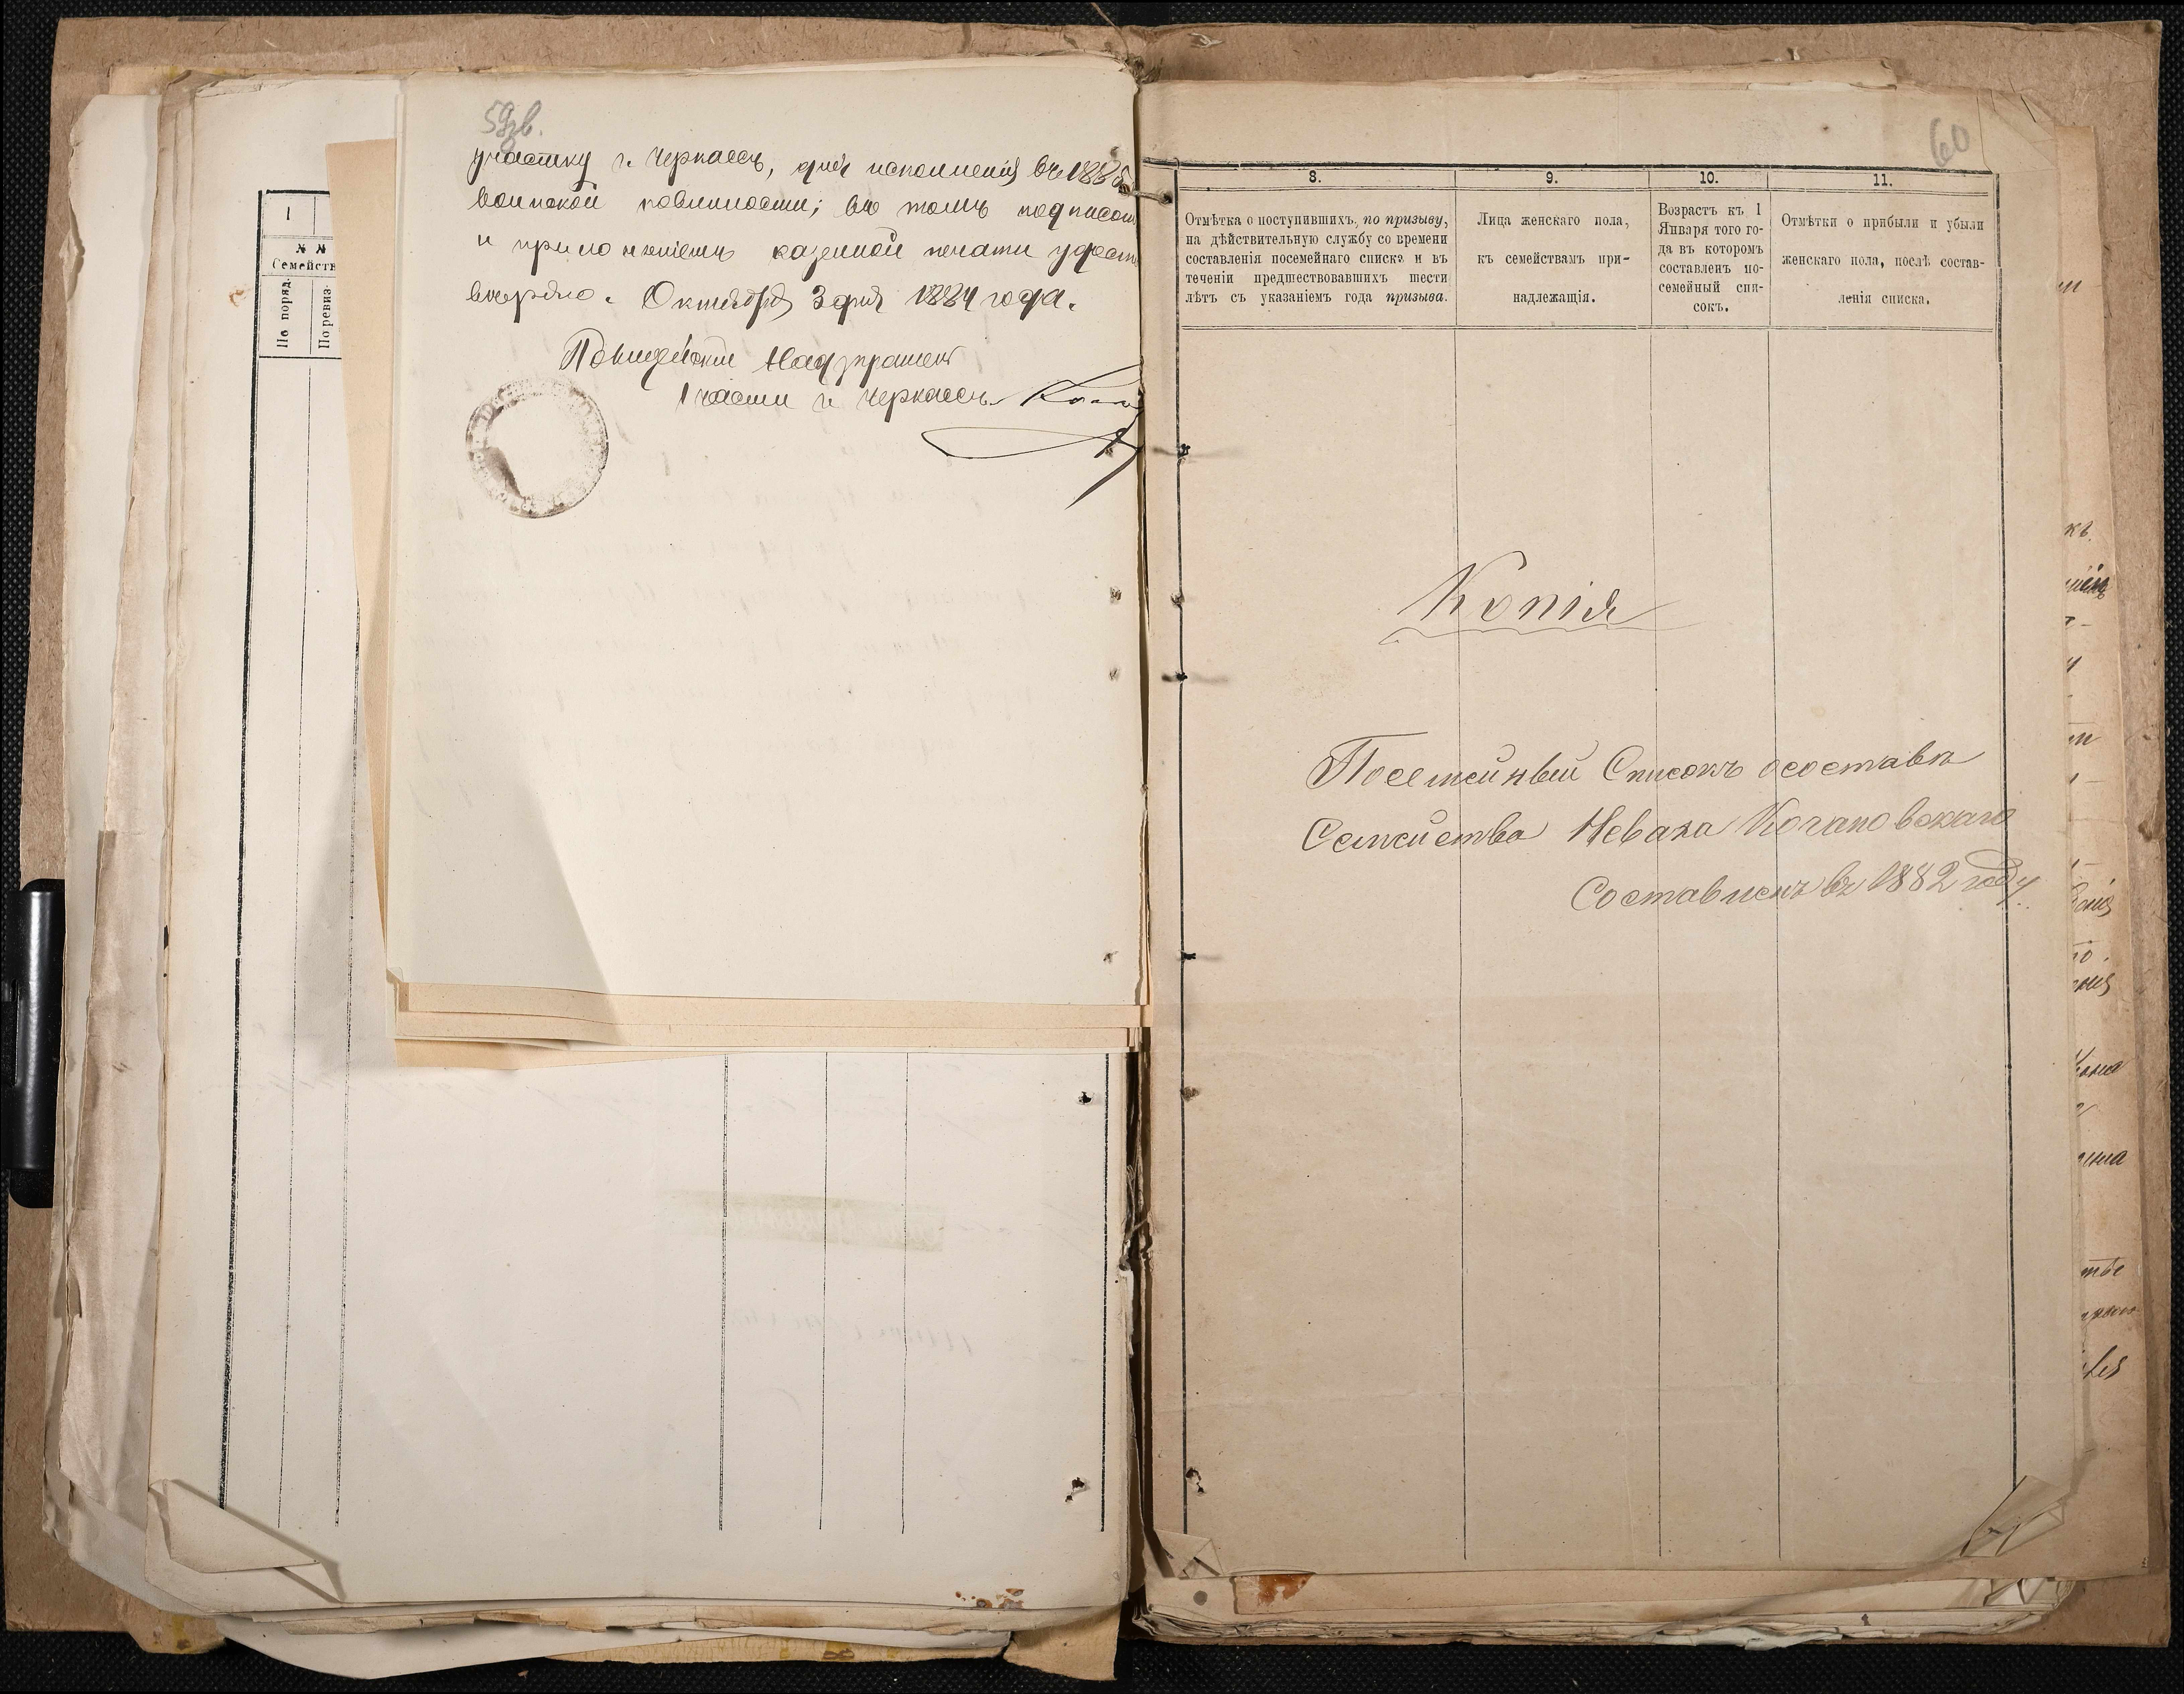 59об.
участку г. Черкассъ, для исполненія въ 1885
воинской повинности; въ томъ подписомъ
и приложеніемъ казенной печати удосто
вѣряю. Октября 3 дня 1884 года.
Полицейскій Надзиратель
1 части г. Черкассъ
1
№ №
Семейств
По поряд.
По ревиз.
60
8.
9.
10.
11.
Отмѣтка о поступившихъ, по призыву,
на дѣйствительную службу со времени
составленія посемейнаго списка и въ
теченіи предшествовавшихъ шести
лѣтъ съ указаніемъ года призыва.
Лица женскаго пола,
къ семействамъ при-
надлежащія.
Возрастъ къ 1
Января того го-
да въ которомъ
составленъ по-
семейный спи-
сокъ.
Отмѣтки о прибыли и убыли
женскаго пола, послѣ состав-
ленія списка.
Копія
Посемейный Списокъ о составѣ
Семейства Неваха Когановскаго
Составленъ въ 1882 году.